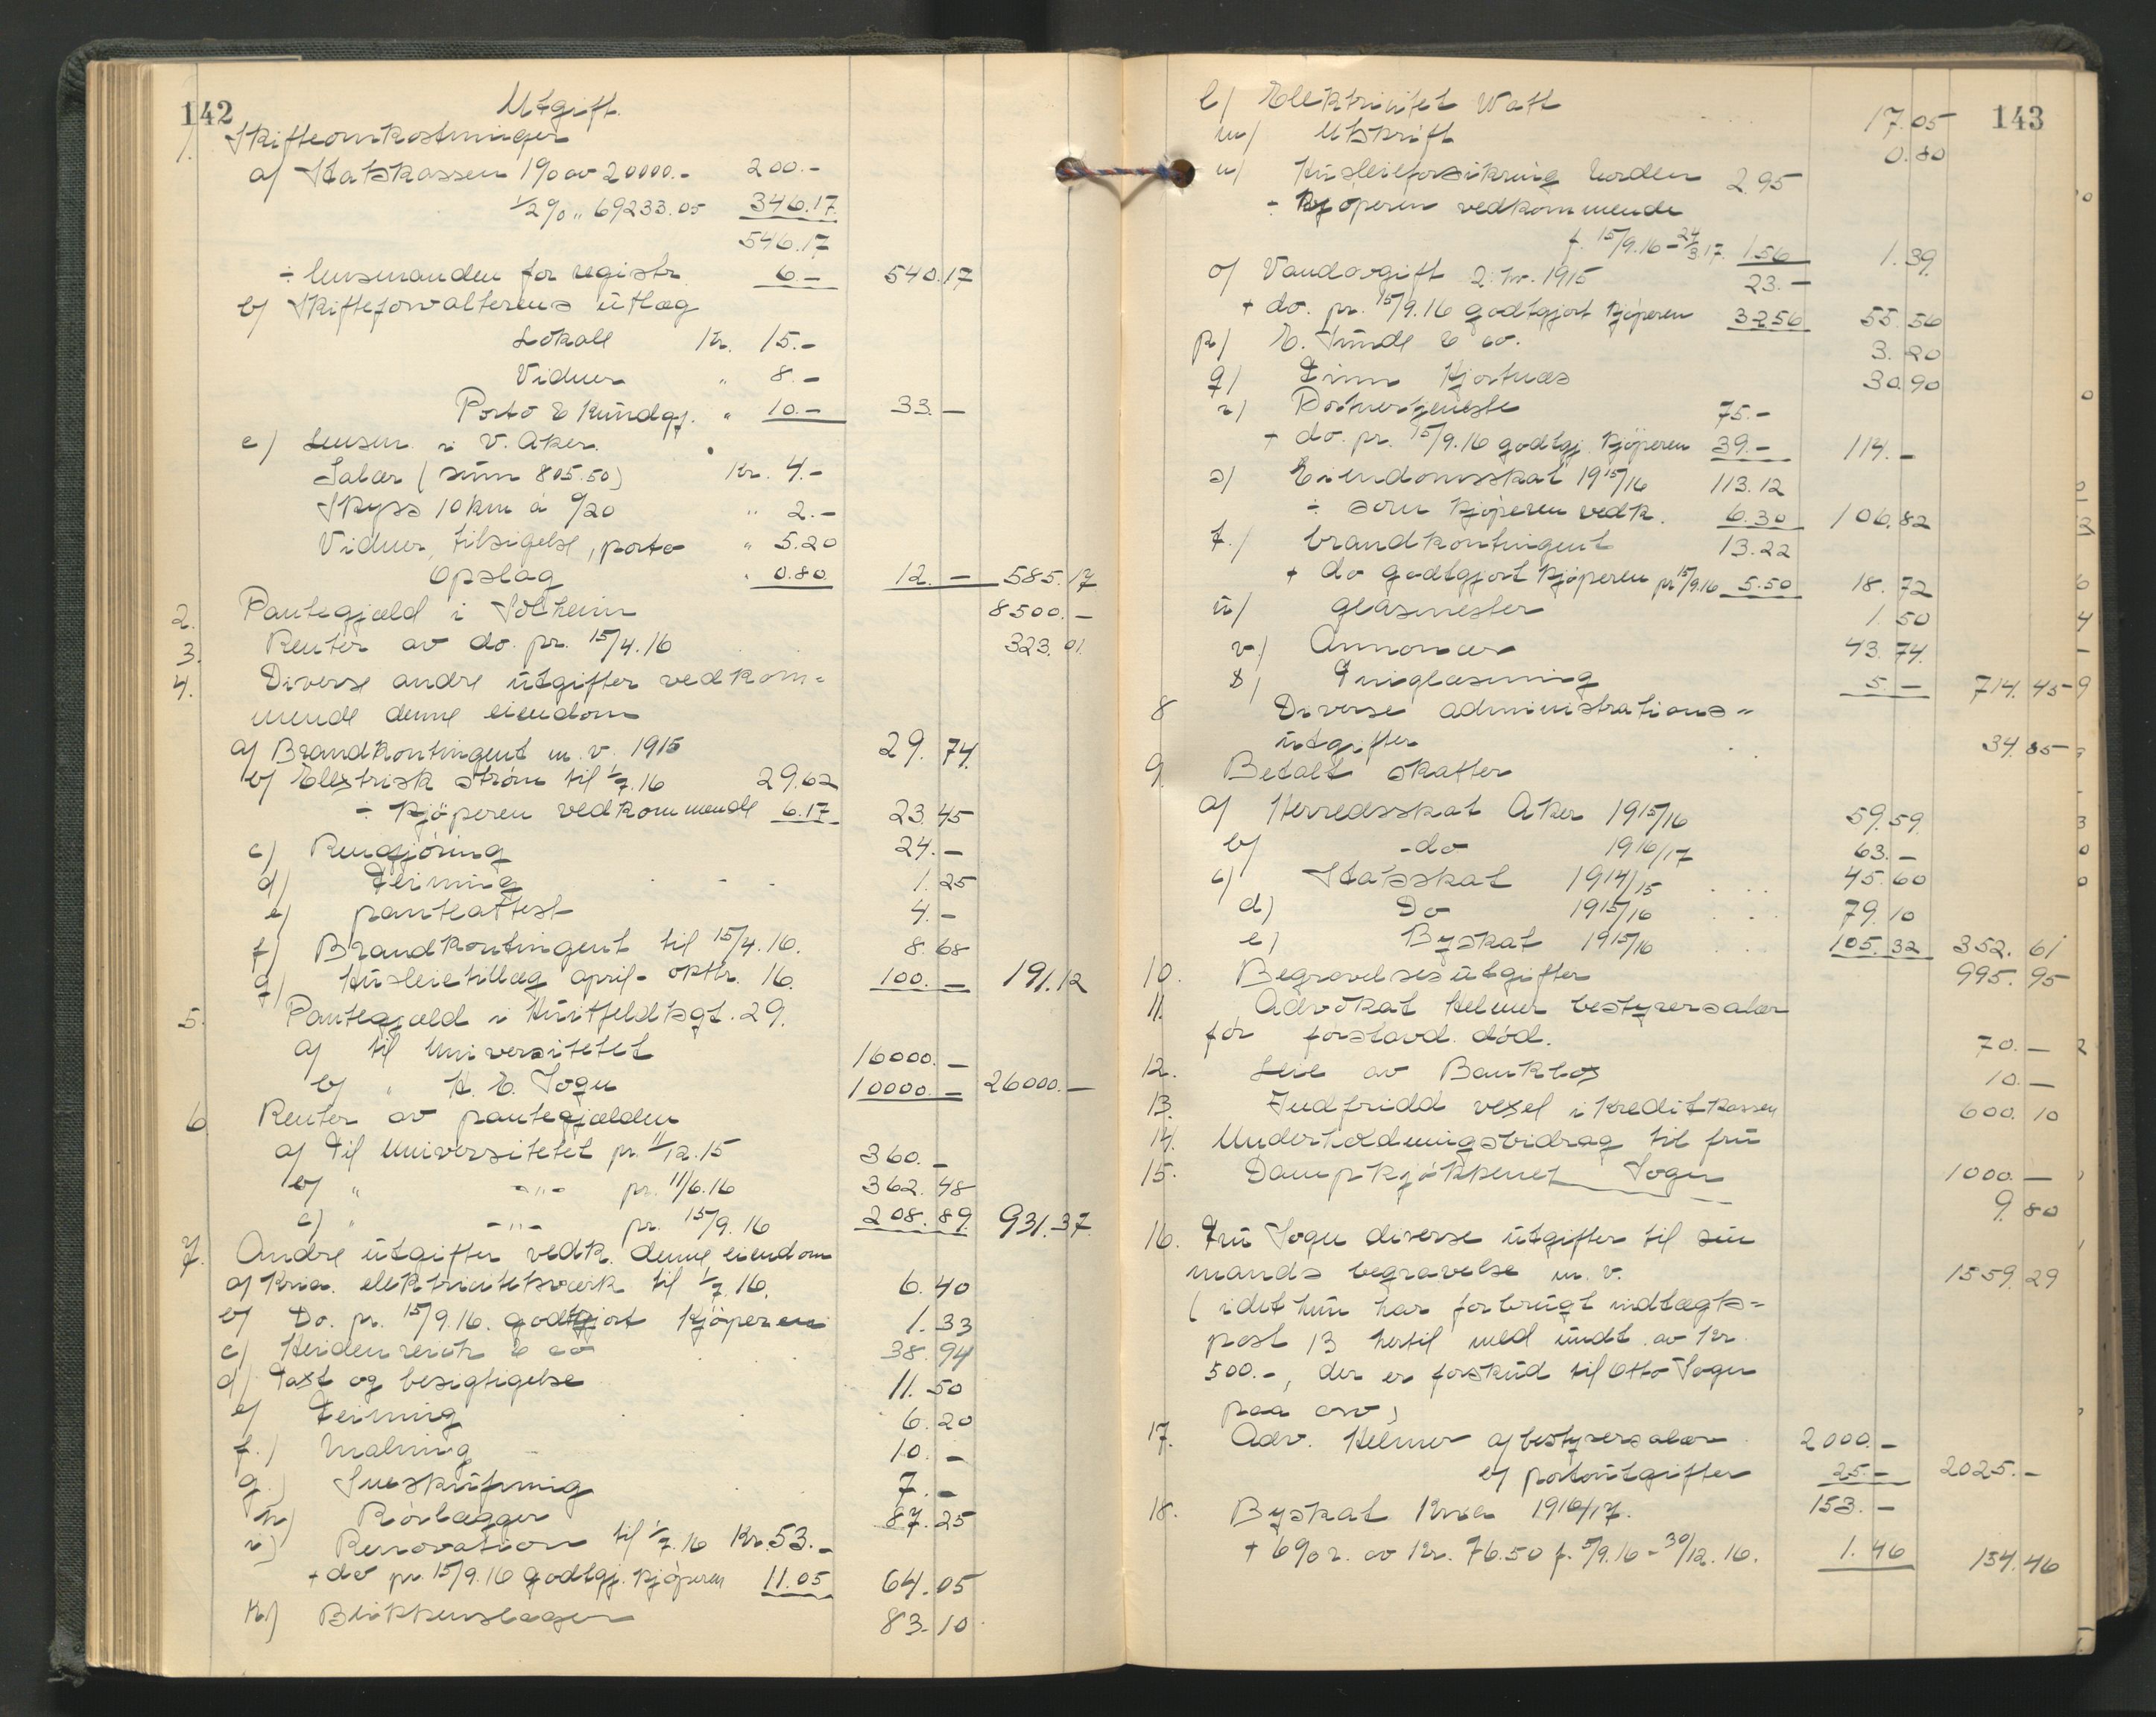 142
Utgift.
1. Skifteomkostninger
a) Statskassen 1% av 20000.- 200.-
1/2% " 69233.05 346.17
546.17
÷ lensmanden for registr. 6.- 540.17
b) Skifteforvalterens utlæg
Lokale Kr. 15.-
Vidner " 8.-
Porto & Kundgj. " 10.- 33.-
c) Lensm. i V. Aker.
Salær (sum 805.50) Kr. 4.-
Skyss 10 km à 0/20 " 2.-
Vidner, tilsigelse, porto " 5.20
Opslag " 0.80 12.- 585.17
2. Pantegjæld i Solheim 8500.-
3. Renter av do. pr. 15/4.16 323.01
4. Diverse andre utgifter vedkom-
mende denne eiendom
a) Brandkontingent m.v. 1915 29.74
b) Elektrisk strøm til 1/7.16 29.62
÷ kjøperen vedkommende 6.17 23.45
c) Rengjøring 24.-
d) Feining 1.25
e) panteattest 4.-
f) Brandkontingent til 15/4.16. 8.68
g) Husleietillæg april - oktbr. 16. 100.- 191.12
5. Pantegjæld i Huitfeldtsgt. 29.
a) til Universitetet 16000.-
b) " H. E. Sogn 10000.- 26000.-
6. Renter av pantegjælden
a) Til Universitetet pr. 11/12.15 360.-
b) " -"- pr. 11/6.16 362.48
c) " -"- pr. 15/9.16 208.89 931.37
7. Andre utgifter vedk. denne eiendom
a) Kria. elektricitetsverk til 1/7.16. 6.40
b) Do. pr. 15/9.16. godtgjort kjøperen 1.33
c) Heidenreich & co 38.94
d) Takst og besigtigelse 11.50
e) Feining 6.20
f.) Malning 10.-
g.) Sneskufning 7.-
h) Rørlægger 87.25
i) Renovation til 1/7.16 Kr. 53.-
+ do pr. 15/9.16 godtgj. kjøperen 11.05 64.05
k) Blikkenslager 83.10
143
l) Elektricitet Watt 17.05
m) Utskrift 0.80
n) Husleieforsikring Norden 2.95
÷ Kjøperen vedkommende
f. 15/9.16 - 24/3.17. 1.56 1.39
o) Vandavgift 2. hv. 1915 23.-
+ do. pr. 15/9.16 godtgjort kjøperen 32.56 55.56
p) E. Sunde & co. 3.20
q) Finn Hjortnæs 30.90
r) Portnertjeneste 75.-
+ do. pr. 15/9.16 godtgj. kjøperen 39.- 114.-
s) Eiendomsskat 1915/16 113.12
÷ som kjøperen vedk. 6.30 106.82
t.) brandkontingent 13.22
+ do godtgjort kjøperen pr 15/9.16 5.50 18.72
u) glasmester 1.50
v.) Annoncer 43.74
x) Iniglasning 5.- 714.45
8 Diverse administrations-
utgifter 34.85
9. Betalt skatter
a) Herredsskat Aker 1915/16 59.59
b) -do 1916/17 63.-
c) Statsskat 1914/15 45.60
d) Do 1915/16 79.10
e) Byskat 1915/16 105.32 352.61
10. Begravelsesutgifter 995.95
11. Advokat Helmer bestyrersalær
før forstavd. død. 70.-
12. Leie av Bankbox 10.-
13. Indfridd vexel i Kreditkassen 600.10
14. Underholdningsbidrag til fru
Sogn 1000.-
15. Dampkjøkkenet 9.80
16. Fru Sogn diverse utgifter til sin
mands begravelse m.v. 1559.29
(idet hun har forbrugt indtægts-
post 13 hertil med undt. av Kr.
500.-, der er forskud til Otto Sogn
paa arv)
17. Adv. Helmer a) bestyrersalær 2000.-
b) portoutgifter 25.- 2025.-
18. Byskat Kria 1916/17. 153.-
+ 6% r. av Kr. 76.50 f. 5/9.16 - 30/12.16. 1.46 154.46